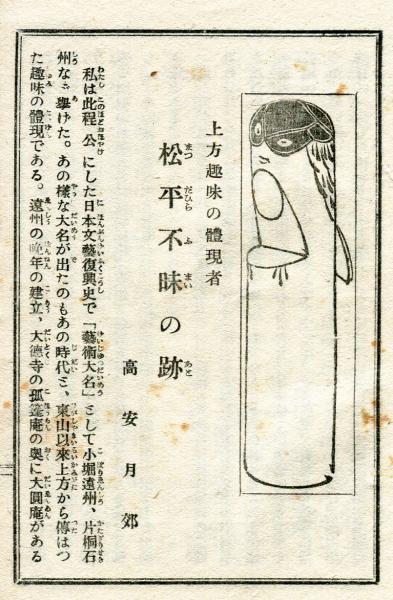 上方趣味の體現者
松平不昧の跡
高安月郊
私は此程公にした日本文藝復興史で「藝術大名」として小堀遠州、片桐石
州なを擧けた。あの樣な大名が出たのもあの時代と、東山以來上方から傳はつ
た趣味の體現である。遠州の晩年の建立、大德寺の孤篷庵の奥に大圓庵がある